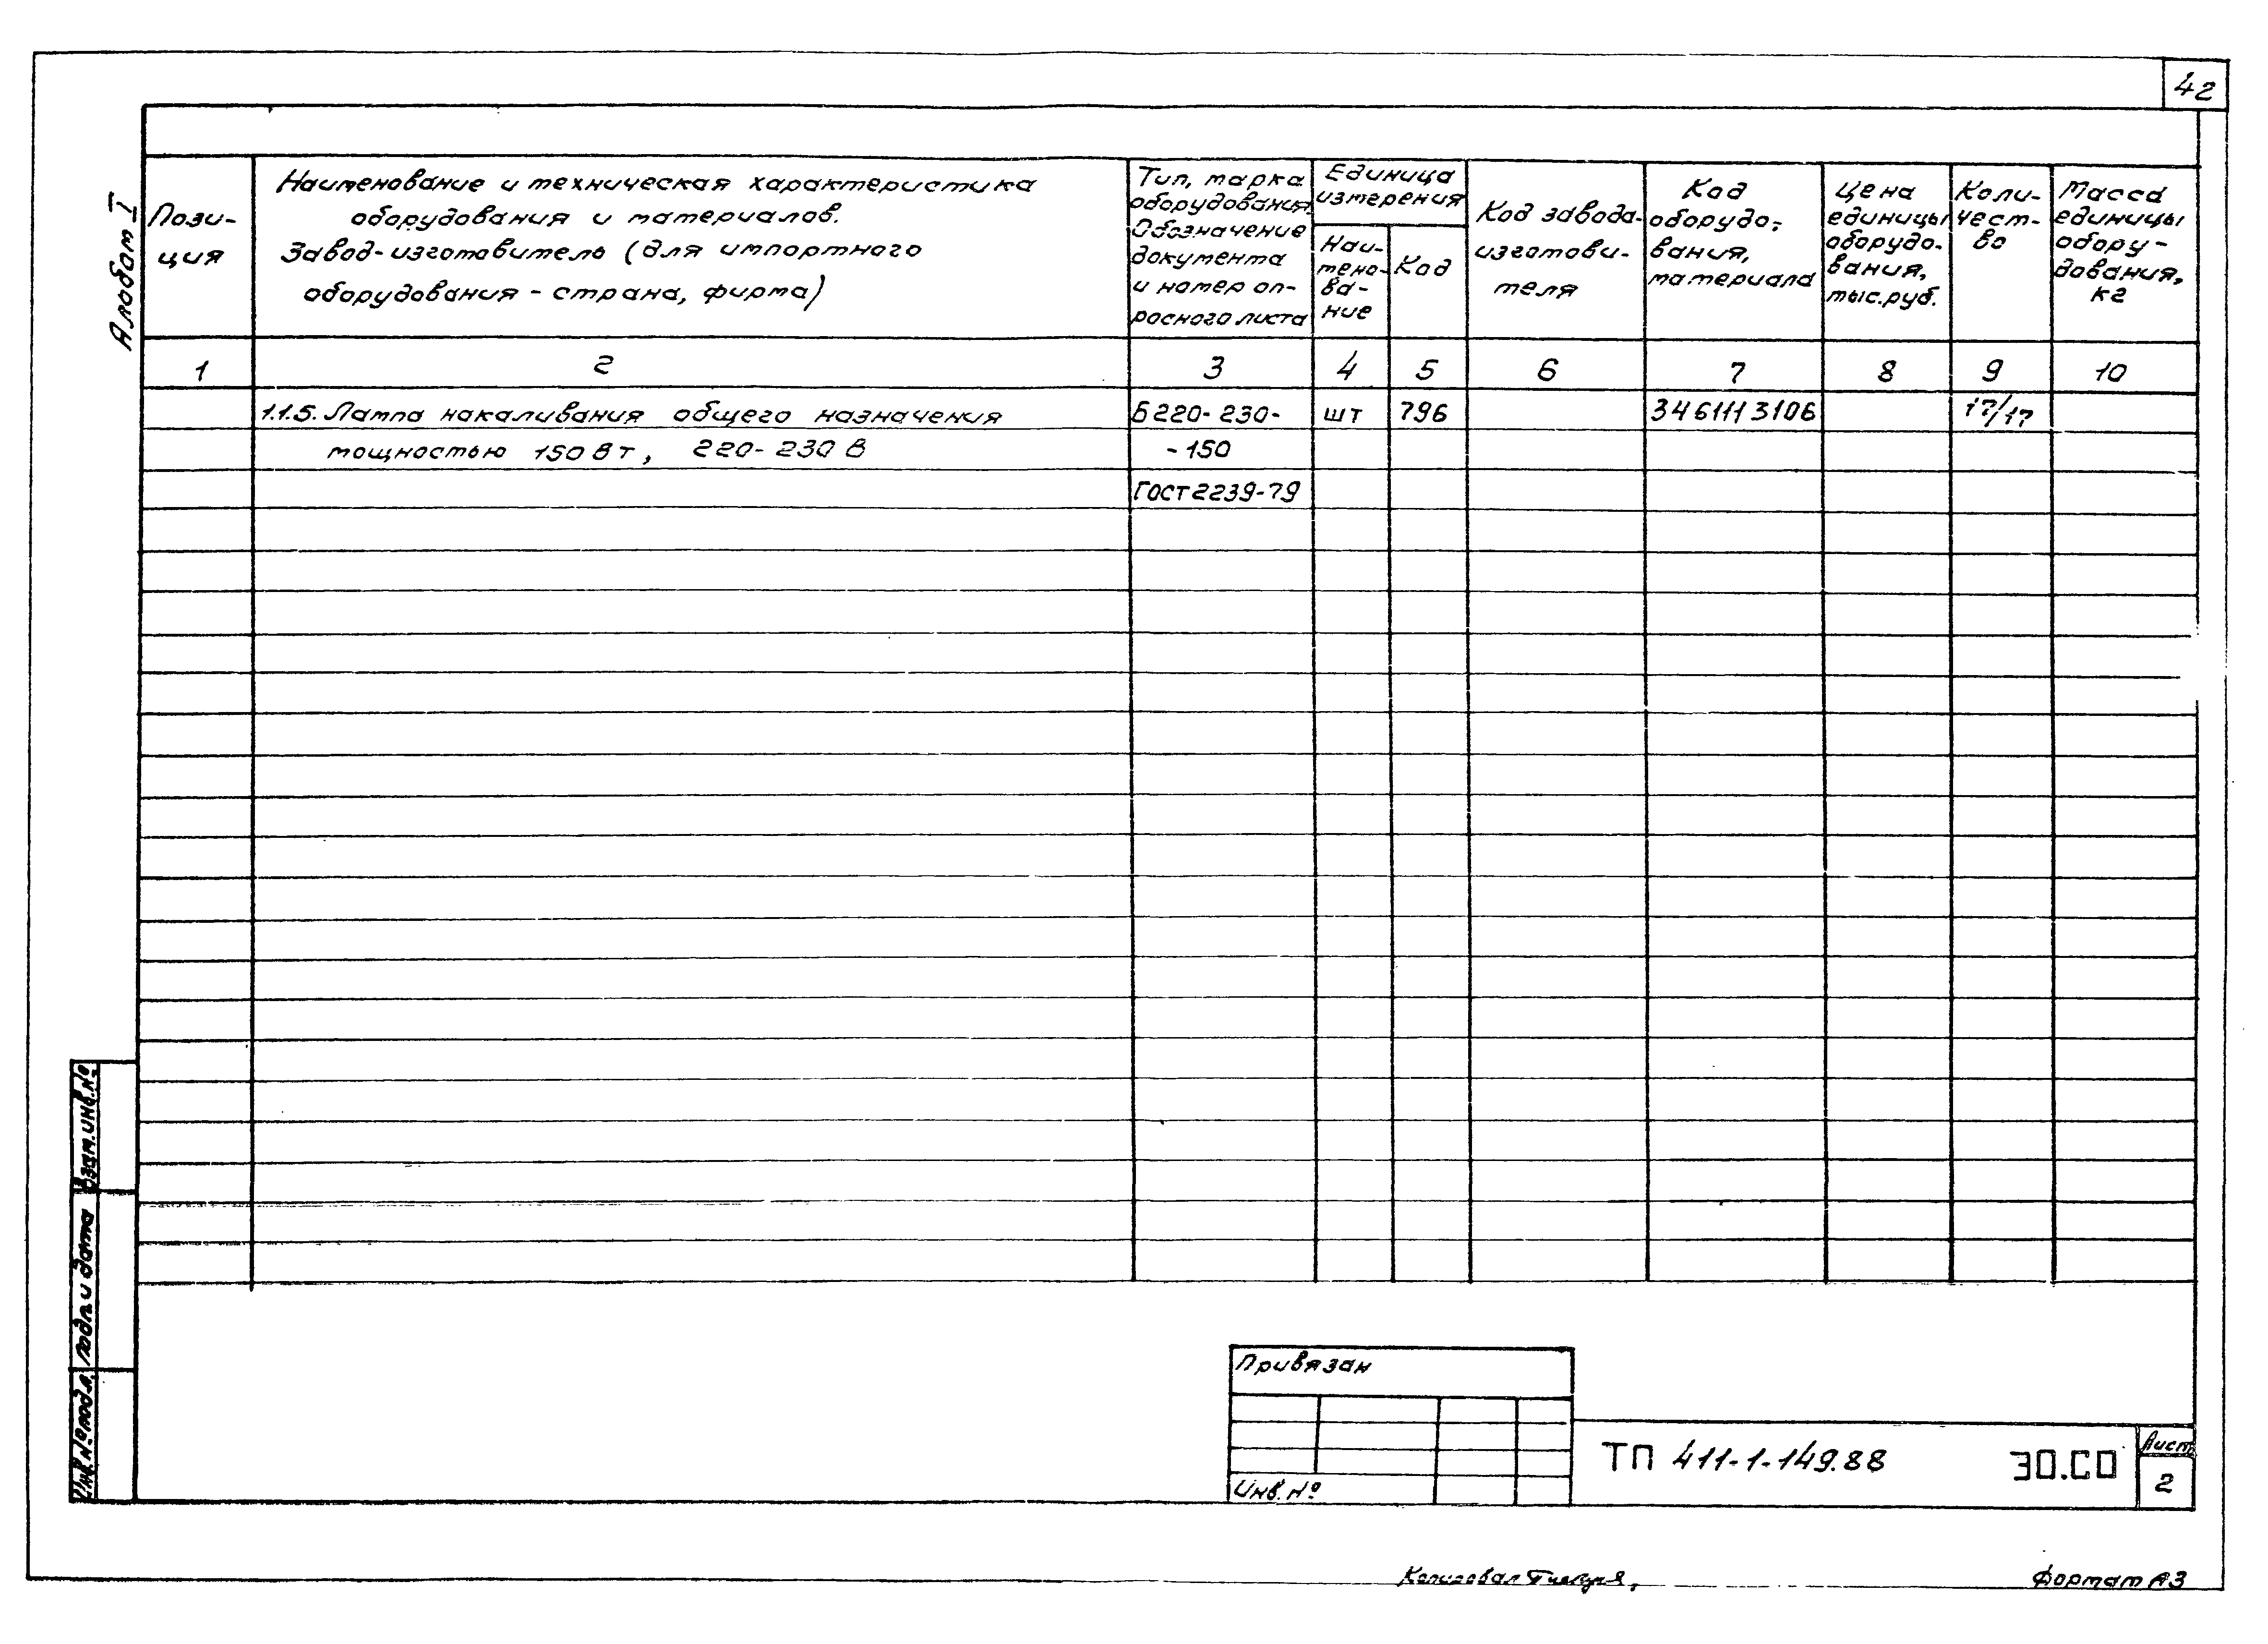 42
Альбом I
Пози-
ция
Наименование и техническая характеристика
оборудования и материалов.
Завод-изготовитель (для импортного
оборудования - страна, фирма)
Тип, марка
оборудования.
Обозначение
документа
и номер оп-
росного листа
Единица
измерения
Наи-
мено-
ва-
ние
Код
Код завода-
изготови-
теля
Код
оборудо-
вания,
материала
Цена
единицы
оборудо-
вания,
тыс.руб.
Коли-
чест-
во
Масса
единицы
обору-
дования,
кг
1 2 3 4 5 6 7 8 9 10
1.1.5. Лампа накаливания общего назначения Б220-230- шт 796 3461113106 17/17
мощностью 150 Вт, 220-230 В -150
Гост 2239-79
Взам.инв.№
Подп. и дата
Инв.№ подл.
Привязан
Инв. №
ТП 411-1-149.88 ЭО.СО
Лист
2
Копировал
Формат А3